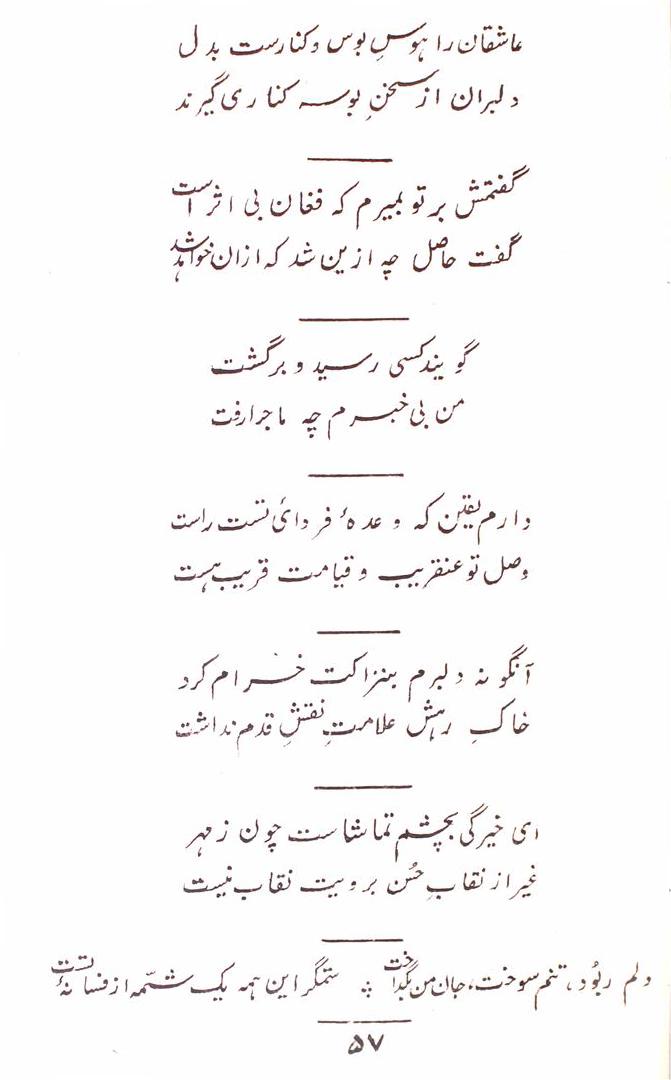 عاشقان را هوسِ بوس و کنارست بدل
دلبران از سخنِ بوسه کناری گیرند
گفتمش بر تو بمیرم که فغان بی اثر است
گفت حاصل چه ازین شد که ازان خواهد شد
گویند کسی رسید و برگشت
من بی خبرم چه ماجرا رفت
دارم یقین که وعدهٔ فردائی تست راست
وصل تو عنقریب و قیامت قریب هست
آنگونه دلبرم بنزاکت خرام کرد
خاکِ رهش علامتِ نقشِ قدم نداشت
ای خیرگی بچشم تماشاست چون ز مهر
غیر از نقابِ حُسن برویت نقاب نیست
دلم ربُود، تنم سوخت، جان من بگداخت ؞ ستمگر این همه یک شمّه از فسانهٔ تست
۵۷